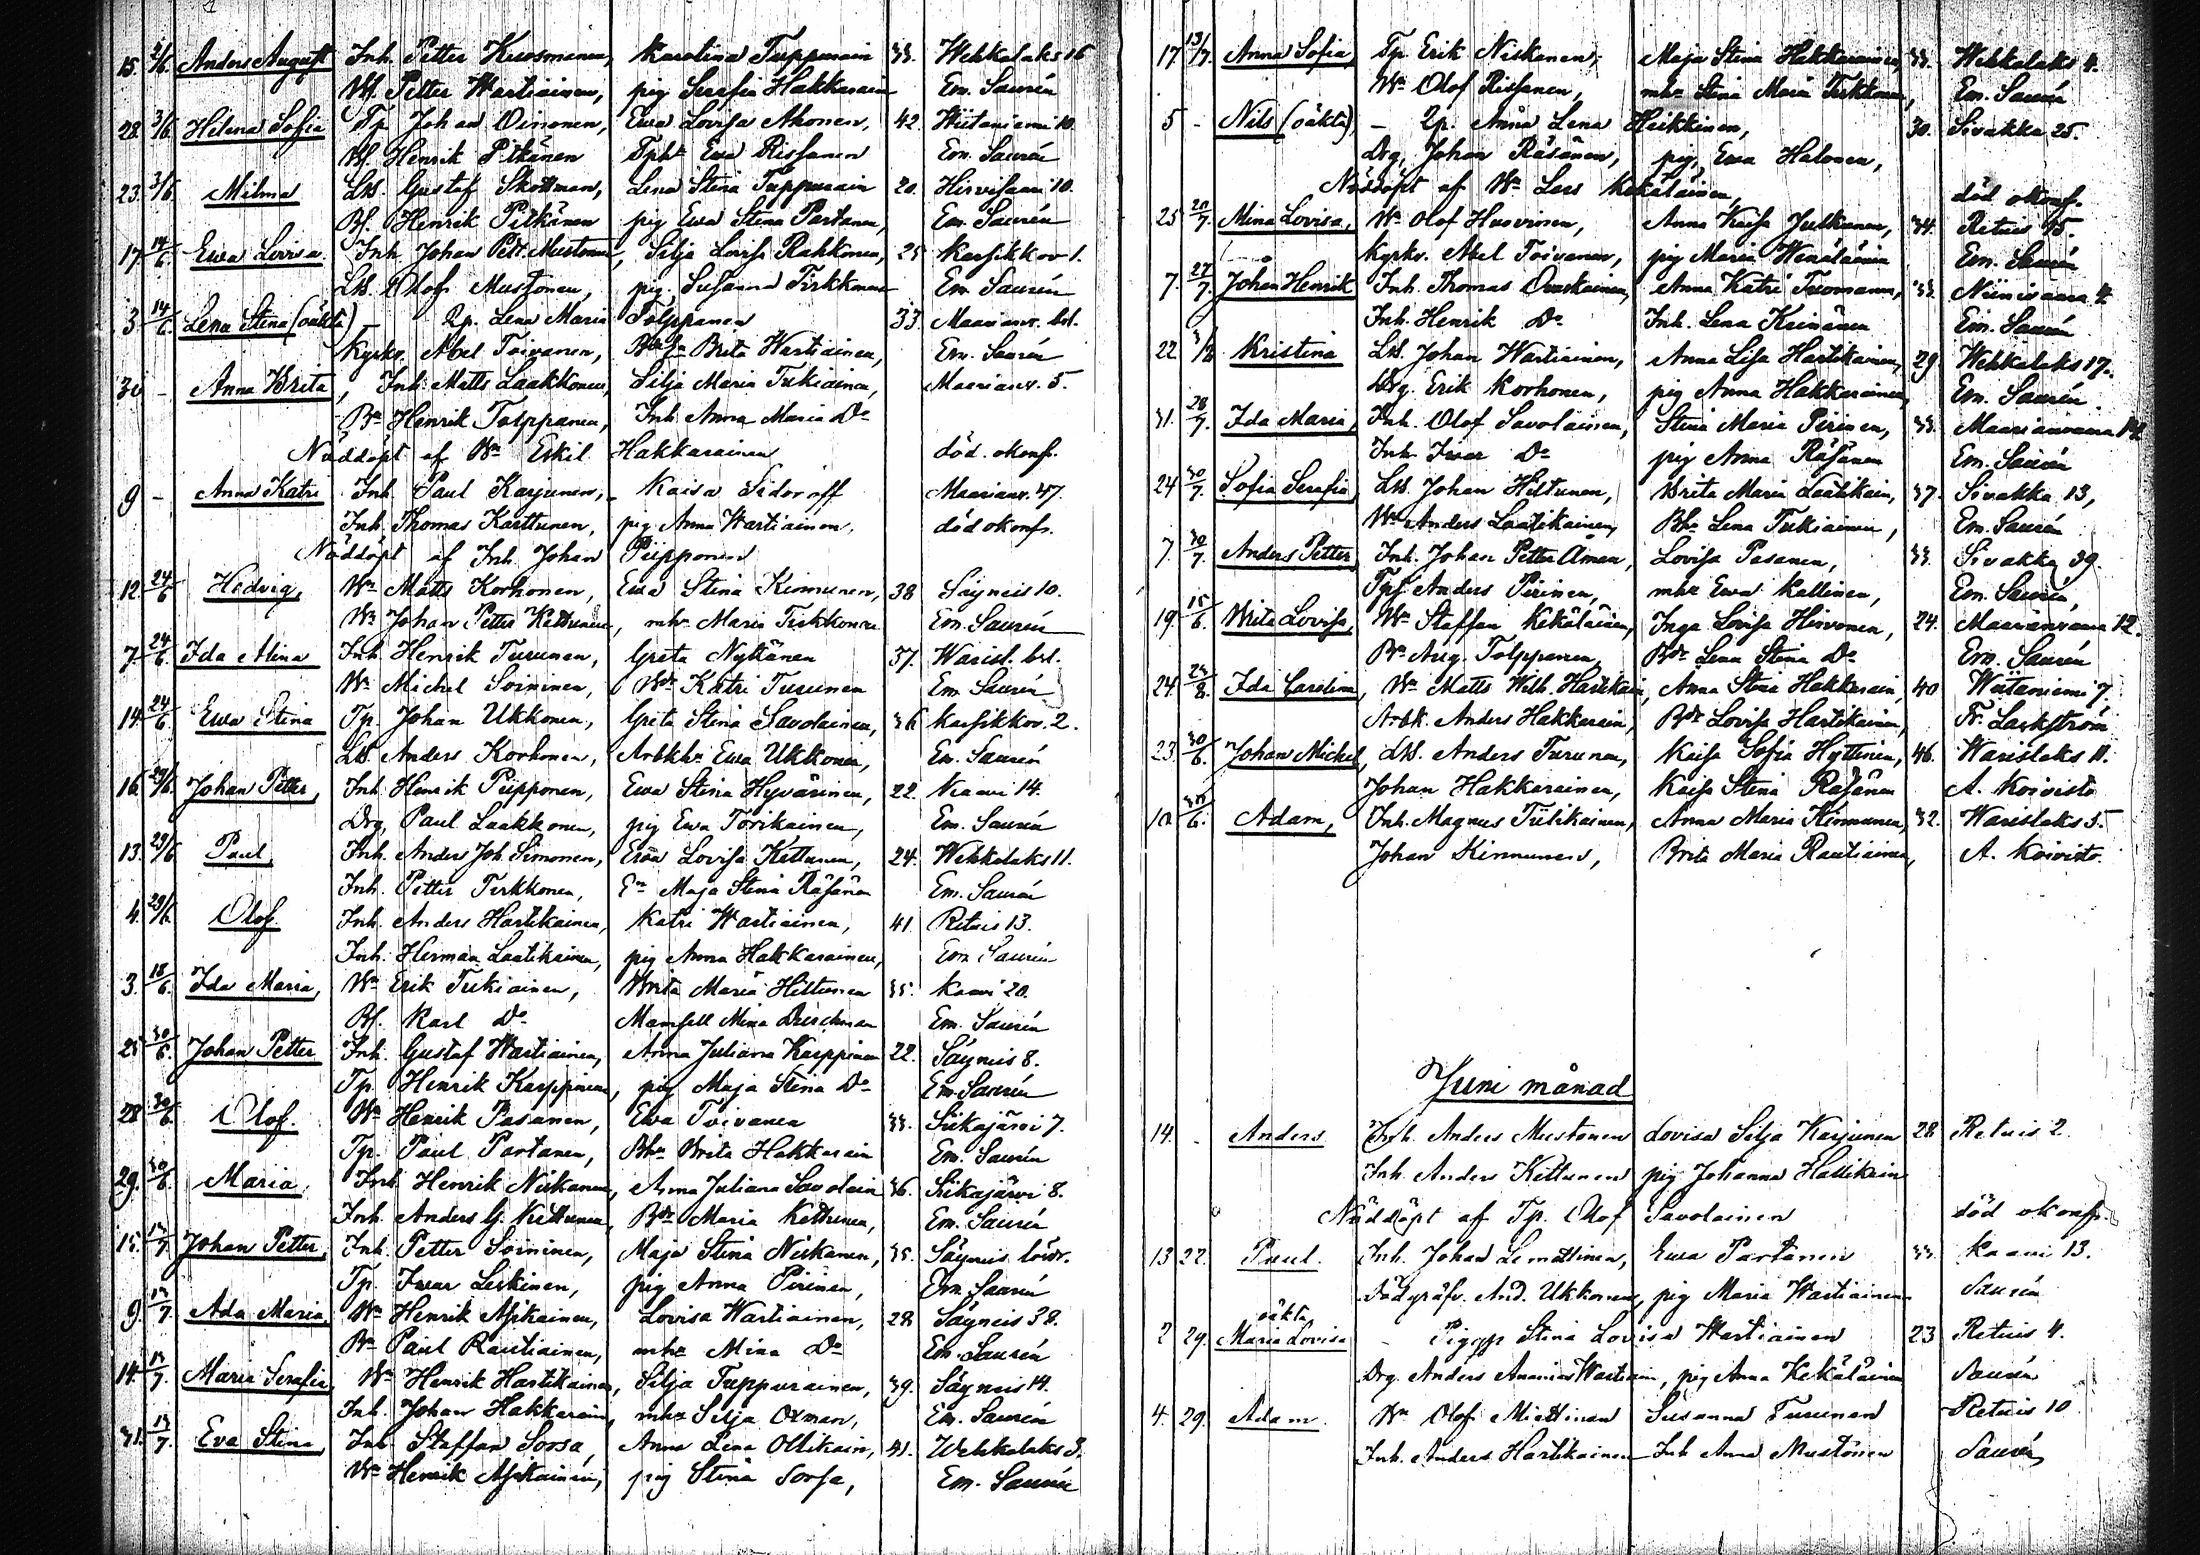 15. 2/6. Anders August Inh. Petter Kuosmanen, Karolina Tuppurain 33. Wehkalaks 16
Bf. Petter Wartiainen, pig Serafia Hakkarain Em. Saurén
28. 3/6. Helena Sofia Tp. Johan Oinonen, Ewa Lovisa Ahonen, 42. Wiitaniemi 10.
Bf. Henrik Pitkänen Tphr Ewa Rissanen Em. Saurén
23. 3/6. Milma Lbs. Gustaf Skottman, Lena Stina Tuppurain 20. Hirvisaari 10.
Bf. Henrik Pitkänen pig Ewa Stina Partanen, Em. Saurén
17. 14/6. Ewa Lovisa. Inh. Johan Pett. Mustonen, Silja Lovisa Rakkonen, 25 Karsikkov 1.
Lbs. Olof Mustonen, pig. Susanna Tirkkonen Em. Saurén
3 14/6. Lena Stina (oäkta) Lp. Lena Maria Tolppanen 33 Maarianv. bst.
Kyrkv. Abel Toivanen, Brita Wartiainen, Em. Saurén
30 - Anna Brita, Inh. Matts Laakkonen, Silja Maria Tukiainen, Maarianv. 5.
Bn Henrik Tolppanen, Inh. Anna Maria Do
Nöddöpt af Bn Eskil Hakkarainen död. okonf.
9 - Anna Katri Inh. Paul Karjunen, Kaisa Sidoroff Maarianv. 47.
Inh. Thomas Karttunen, pig Anna Wartiainen, död okonf.
Nöddöpt af Inh. Johan Piipponen
12. 24/6 Hedvig, Bn Matts Korhonen, Ewa Stina Kinnunen, 38 Säyneis 10.
Bn Johan Petter Kettunen, mhr Maria Tirkkonen Em. Saurén
7. 24/6. Ida Alina Inh. Henrik Turunen, Greta Nykänen 37. Warisl. bst.
Bn Michel Soininen, Bdr Katri Turunen Em. Saurén
14. 24/6 Ewa Stina Tp. Johan Ukkonen, Greta Stina Savolainen, 36 Karsikkov. 2.
Lbs. Anders Korhonen, Arbkhr Ewa Ukkonen, Em. Saurén
16. 29/6. Johan Petter, Inh. Henrik Piipponen, Ewa Stina Hyvärinen, 22. Kaavi 14.
Drg. Paul Laakkonen, pig Ewa Torikainen, Em. Saurén
13. 29/6 Paul, Inh. Anders Joh. Simonen, Ewa Lovisa Kettunen, 24. Wehkalaks 11.
Inh. Petter Tirkkonen, En Maja Stina Räsänen Em. Saurén
4. 29/6. Olof. Inh. Anders Hartikainen, Katri Wartiainen, 41. Retuis 13.
Inh. Herman Laatikainen, pig Anna Hakkarainen, Em. Saurén
3. 18/6. Ida Maria, Bn Erik Tukiainen, Brita Maria Hiltunen 35. Kaavi 20.
Bf. Karl Do Mamsell Mina Em. Saurén
25 30/6. Johan Petter Inh. Gustaf Wartiainen, Anna Juliana Karppinen 22. Säyneis 8.
Tp. Henrik Karppinen, pig Maja Stina Do Em. Saurén
28 30/6. Olof. Bn Henrik Pasanen, Ewa Toivanen 33. Siikajärvi 7.
Tp. Paul Partanen, Bhr Brita Hakkarain Em. Saurén
29. 30/6. Maria, Inh. Henrik Niskanen, Anna Juliana Savolain 36. Siikajärvi 8.
Inh. Anders G. Kettunen, Bdr Maria Kettunen, Em. Saurén
15. 13/7 Johan Petter, Inh. Petter Soininen, Maja Stina Niskanen, 35. Säyneis lösdr.
Tp. Iwar Leskinen, pig Anna Pirinen, Em. Saurén
9. 13/7. Ada Maria, Bn Henrik Asikainen, Lovisa Wartiainen, 28 Säyneis 38.
Bn Paul Rautiainen, mhr Mina Do Em. Saurén
14. 13/7. Maria Serafia, Bn Henrik Hartikainen, Silja Tuppurainen, 39. Säyneis 14.
Inh. Johan Hakkarain, mhr Silja Oxman, Em. Saurén
31. 13/7. Eva Stina Inh. Staffan Sorsa, Anna Lena Ollikain, 41. Wehkalaks 3.
Bn Henrik Asikainen, pig Stina Sorsa, Em. Saurén
17 13/7. Anna Sofia, Tp. Erik Niskanen, Maja Stina Hakkarainen, 33. Wehkalaks 4.
Bn Olof Rissanen, mhr Stina Maria Tirkkonen, Em. Saurén
5 - Nils (oäkta), - Lp. Anna Lena Heikkinen, 30. Sivakka 25.
Drg. Johan Räsänen, pig. Ewa Halonen,
Nöddöpt af Bn Lars Kekäläinen, död okonf.
25 20/7. Mina Lovisa, Bn Olof Huovinen, Anna Kaisa Julkunen, 34. Retuis 15.
Kyrkv. Abel Toivanen, pig Maria Wenäläinen Em. Saurén
7. 27/7. Johan Henrik Inh. Thomas Ovaskainen, Anna Katri Tuomainen, 33. Niinisaari 4.
Inh. Henrik Do Inh. Lena Keinänen Em. Saurén
22 3/8 Kristina Lbs. Johan Wartiainen, Anna Lisa Hartikainen, 29 Wehkalaks 17.
Drg. Erik Korhonen, pig Anna Hakkarainen, Em. Saurén
31. 28/7. Ida Maria, Inh. Olof Savolainen, Stina Maria Pirinen, 33. Maarianvaara 14.
Inh. Iwar Do pig Anna Räsänen Em. Saurén
24 30/7. Sofia Serafia, Lbs. Johan Hiltunen, Brita Maria Laatikain, 37. Sivakka 13,
Bn Anders Laatikainen, Bhr Lena Tukiainen, Em. Saurén
7. 30/7. Anders Petter, Inh. Johan Petter Åman, Lovisa Pasanen, 33. Sivakka 39.
Tpf Anders Pirinen, mhr Ewa Kallinen, Em. Saurén,
19. 15/6. Brita Lovisa, Bn Staffan Kekäläinen, Inga Lovisa Hirvonen, 24. Maarianvaara 12.
Bn Aug. Tolppanen, Bdr Lena Stina Do Em. Saurén
24. 23/8. Ida Carolina, Bn Matts Wilh. Hartikain, Anna Stina Hakkarain, 40 Wiitaniemi 7
Arbk. Anders Hakkarain, Bdr Lovisa Hartikainen, Fr. Lackström
23. 30/6. Johan Michel, Lbs. Anders Turunen, Kaisa Sofia Hyttinen, 46. Warislaks 11.
Johan Hakkarainen, Kaisa Stina Räsänen A. Koivisto
10 30/6. Adam, Inh. Magnus Tiilikainen, Anna Maria Kinnunen, 32. Warislaks 5.
Johan Kinnunen, Brita Maria Rautiainen, A. Koivisto.
Juni månad
14. - Anders Inh. Anders Mustonen Lovisa Silja Karjunen 28 Retuis 2.
Inh. Anders Kettunen pig Johanna Hallikain
Nöddöpt af Tp. Olof Savolainen död okonf.
13 22. Paul. Inh. Johan Lemettinen, Ewa Partanen 33. Kaavi 13.
Dödgräfv. And. Ukkonen, pig Maria Wartiainen Saurén
oäkta
2 29. Maria Lovisa - Pig Stina Lovisa Wartiainen 23 Retuis 4.
Drg. Anders Ananias Wartiain, pig Anna Kekäläinen Saurén
4. 29. Adam. Bn Olof Miettinen Susanna Turunen Retuis 10
Inh. Anders Hartikainen Inh Anna Mustonen Saurén